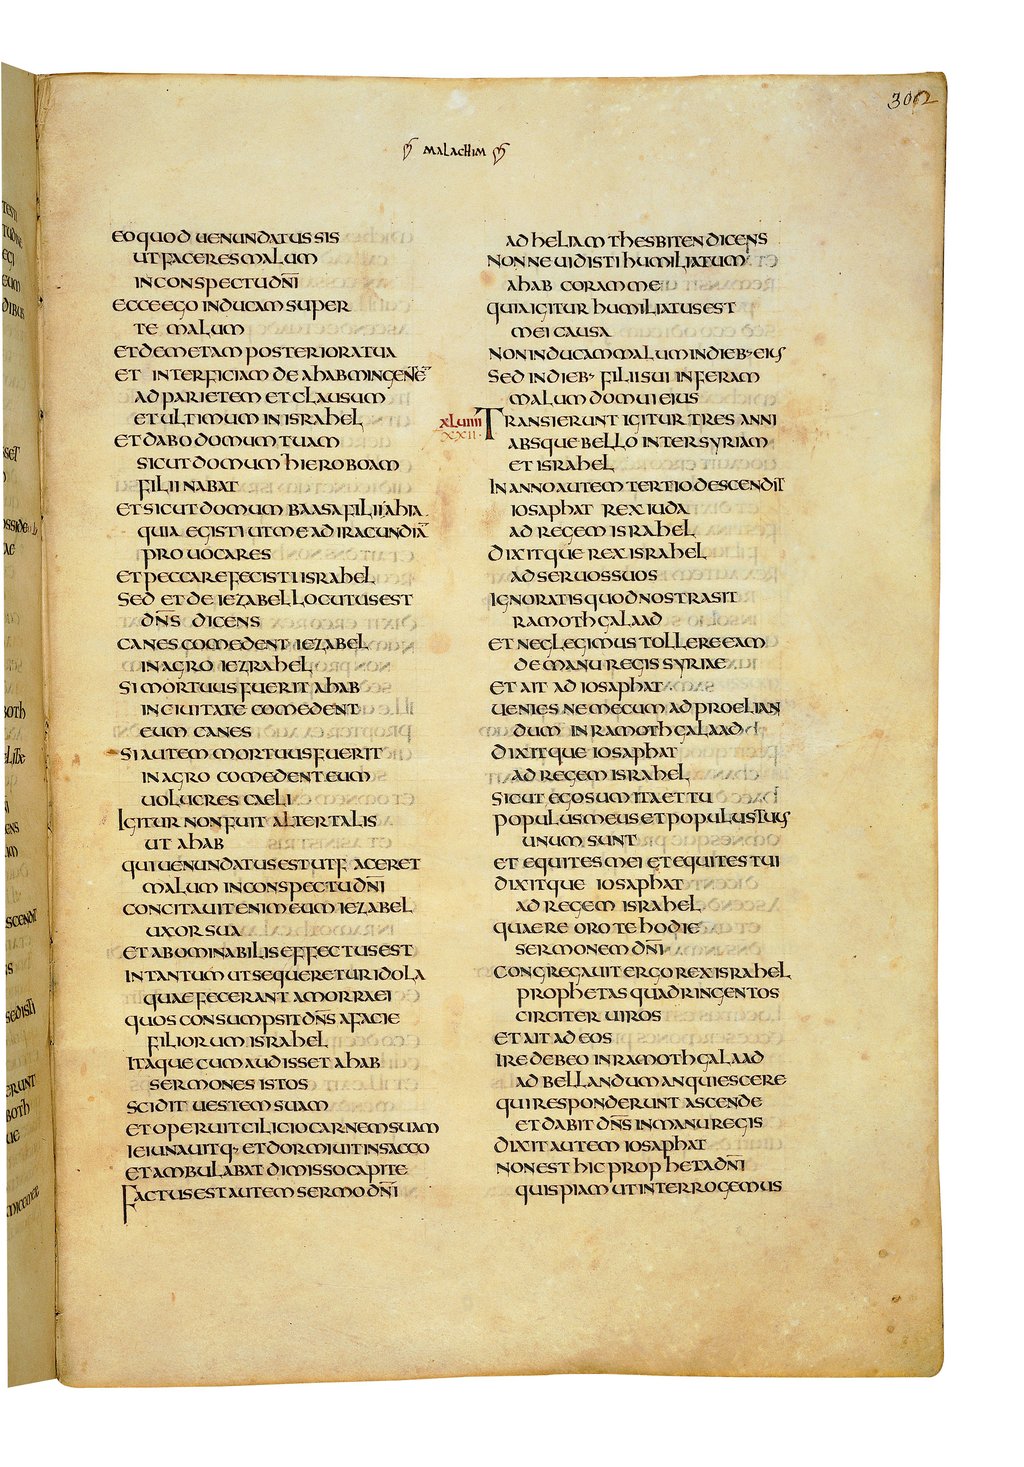 302
MALACHIM
EO QUOD UENUNDATUS SIS
UT FACERES MALUM
IN CONSPECTU DN̅I
ECCE EGO INDUCAM SUPER
TE MALUM
ET DEMETAM POSTERIORA TUA
ET INTERFICIAM DE AHAB MINGENTE̅
AD PARIETEM ET CLAUSUM
ET ULTIMUM IN ISRAHEL
ET DABO DOMUM TUAM
SICUT DOMUM HIEROBOAM
FILII NABAT
ET SICUT DOMUM BAASA FILII AHIA
QUIA EGISTI UT ME AD IRACUNDIA̅
PROUOCARES
ET PECCARE FECISTI ISRAHEL
SED ET DE IEZABEL LOCUTUS EST
DN̅S DICENS
CANES COMEDENT IEZABEL
IN AGRO IEZRAHEL
SI MORTUUS FUERIT AHAB
IN CIUITATE COMEDENT
EUM CANES
SI AUTEM MORTUUS FUERIT
IN AGRO COMEDENT EUM
UOLUCRES CAELI
IGITUR NON FUIT ALTER TALIS
UT AHAB
QUI UENUNDATUS EST UT FACERET
MALUM IN CONSPECTU DN̅I
CONCITAUIT ENIM EUM IEZABEL
UXOR SUA
ET ABOMINABILIS EFFECTUS EST
IN TANTUM UT SEQUERETUR IDOLA
QUAE FECERANT AMORRAEI
QUOS CONSUMPSIT DN̅S A FACIE
FILIORUM ISRAHEL
ITAQUE CUM AUDISSET AHAB
SERMONES ISTOS
SCIDIT UESTEM SUAM
ET OPERUIT CILICIO CARNEM SUAM
IEIUNAUITQ; ET DORMIUIT IN SACCO
ET AMBULABAT DIMISSO CAPITE
FACTUS EST AUTEM SERMO DN̅I
AD HELIAM THESBITEN DICENS
NONNE UIDISTI HUMILIATUM
AHAB CORAM ME
QUIA IGITUR HUMILIATUS EST
MEI CAUSA
NON INDUCAM MALUM IN DIEB; EIUS
SED IN DIEB; FILII SUI INFERAM
MALUM DOMUI EIUS
XLIIII TRANSIERUNT IGITUR TRES ANNI
XXII
ABSQUE BELLO INTER SYRIAM
ET ISRAHEL
IN ANNO AUTEM TERTIO DESCENDIT
IOSAPHAT REX IUDA
AD REGEM ISRAHEL
DIXITQUE REX ISRAHEL
AD SERUOS SUOS
IGNORATIS QUOD NOSTRA SIT
RAMOTH GALAAD
ET NEGLEGIMUS TOLLERE EAM
DE MANU REGIS SYRIAE
ET AIT AD IOSAPHAT
UENIES NE MECUM AD PROELIAN
DUM IN RAMOTH GALAAD
DIXITQUE IOSAPHAT
AD REGEM ISRAHEL
SICUT EGO SUM ITA ET TU
POPULUS MEUS ET POPULUS TUUS
UNUM SUNT
ET EQUITES MEI ET EQUITES TUI
DIXITQUE IOSAPHAT
AD REGEM ISRAHEL
QUAERE ORO TE HODIE
SERMONEM DN̅I
CONGREGAUIT ERGO REX ISRAHEL
PROPHETAS QUADRINGENTOS
CIRCITER UIROS
ET AIT AD EOS
IRE DEBEO IN RAMOTH GALAAD
AD BELLANDUM AN QUIESCERE
QUI RESPONDERUNT ASCENDE
ET DABIT DN̅S IN MANU REGIS
DIXIT AUTEM IOSAPHAT
NON EST HIC PROPHETA DN̅I
QUISPIAM UT INTERROGEMUS